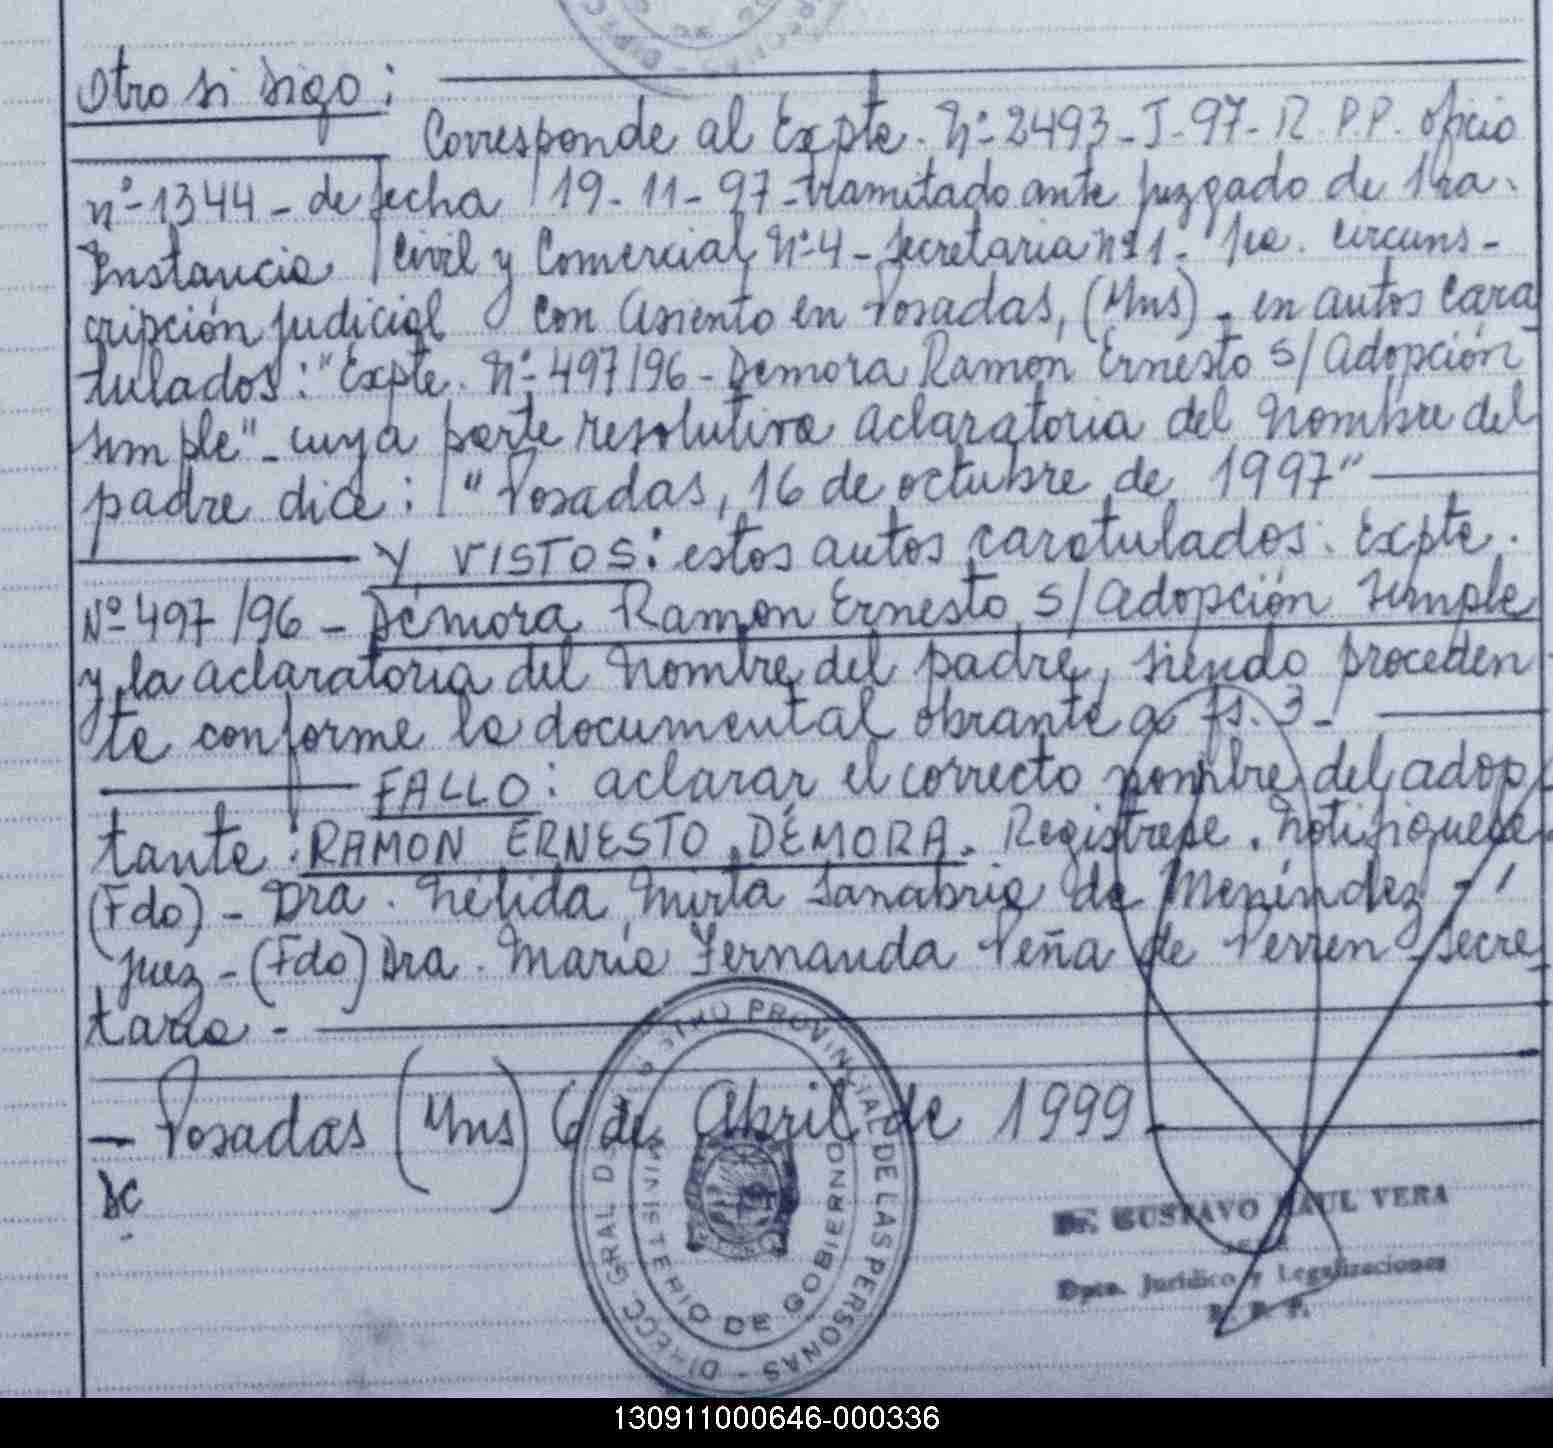 Otro si digo:
Corresponde al Expte. Nº 2493-J-97-R.P.P. oficio
nº 1344- de fecha 19-11-97- tramitado ante juzgado de 1ra.
Instancia Civil y Comercial Nº 4- Secretaria nº 1- 1ra. circuns-
cripción judicial con asiento en Posadas, (Mns) - en autos cara
tulados: "Expte. Nº 497/96- Demora Ramon Ernesto s/ adopción
simple"- cuya parte resolutiva aclaratoria del nombre del
padre dice: "Posadas, 16 de octubre de 1997"
Y VISTOS: estos autos caratulados: Expte.
Nº 497/96 - Démora Ramon Ernesto s/ adopción simple
y la aclaratoria del nombre del padre, siendo proceden
te conforme la documental obrante a fs. 3-
FALLO: aclarar el correcto nombre del adop
tante: RAMON ERNESTO DÉMORA. Registrese. Notifiquese
(Fdo)- Dra. Nélida Mirta Sanabria de Menéndez -
juez - (Fdo) Dra. María Fernanda Peña de Perren - Secre
taria -
- Posadas (Mns) 6 de Abril de 1999
SC
DIRECC. GRAL D REGISTRO PROVINCIAL DE LAS PERSONAS
MINISTERIO DE GOBIERNO
Dr. GUSTAVO RAUL VERA
JEFE
Dpto. Jurídico y Legalizaciones
R. P. P.
130911000646-000336